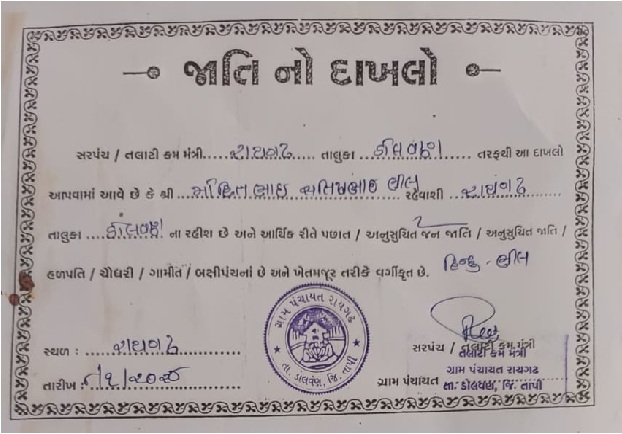 જાતિ નો દાખલો
સરપંચ / તલાટી કમ મંત્રી.....રાયગઢ...... તાલુકા ....ડોલવણ...... તરફથી આ દાખલો
આપવામાં આવે છે કે શ્રી ....રોહિતભાઇ સતિષભાઇ ભીલ.... રહેવાશી ...રાયગઢ.....
તાલુકા ....ડોલવણ.... ના રહીશ છે અને આર્થિક રીતે પછાત / અનુસુચિત જન જાતિ / અનુસુચિત જાતિ /
હળપતિ / ચૌધરી / ગામીત / બક્ષીપંચનાં છે અને ખેતમજૂર તરીકે વર્ગીકૃત છે. હિન્દુ - ભીલ
ગ્રામ પંચાયત રાયગઢ
તા. ડોલવણ, જિ. તાપી
સ્થળ : ....રાયગઢ......
તારીખ :
સરપંચ / તલાટી કમ મંત્રી
તલાટી કમ મંત્રી
ગ્રામ પંચાયત રાયગઢ
ગ્રામ પંચાયત તા. ડોલવણ, જિ. તાપી